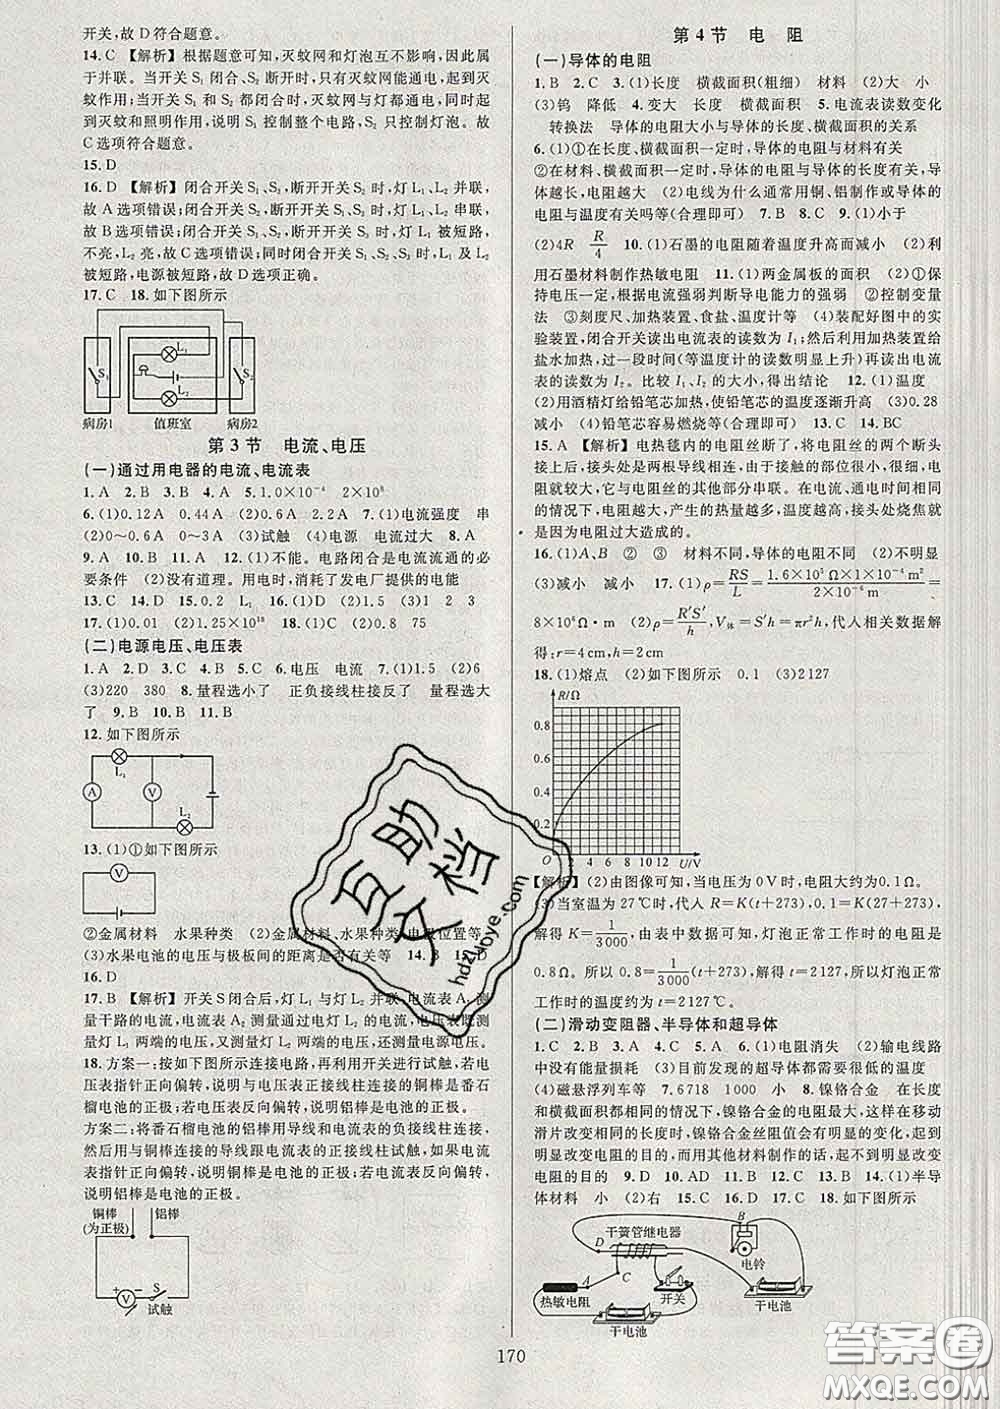 开关,故D符合题意。
14.C 【解析】根据题意可知,灭蚊网和灯泡互不影响,属
于并联。当开关 S₁ 闭合、S₂ 断开时,只有灭蚊网能通电,起到灭
蚊作用;当开关 S₁ 和 S₂ 都闭合时,灭蚊网与灯都能通电,同时
起灭蚊和照明作用,说明 S₁ 控制整个电路,S₂ 只控制灯泡。故
C选项符合题意。
15.D
16.D 【解析】闭合开关 S₁、S₃,断开开关 S₂ 时,灯 L₁、L₂ 并联,
故A选项错误;闭合开关 S₂,断开开关 S₁、S₃ 时,灯 L₁、L₂ 串联,
故B选项错误;闭合开关 S₁、S₂,断开开关 S₃ 时,灯 L₁ 被短路,
不亮,L₂ 亮,故C选项错误;同时闭合开关 S₁、S₂、S₃ 时,灯 L₁、L₂
被短路,电源被短路,故D选项正确。
17.C 18.如下图所示
L₁
S₁
L₂
S₂
病房1 值班室 病房2
第3节 电流、电压
(一)通过用电器的电流、电流表
1.A 2.B 3.B 4.A 5.1.0×10⁻⁴ 2×10⁸
6.(1)0.12 A 0.44 A (2)0.6 A 2.2 A 7.(1)电流强度 串
(2)0~0.6 A 0~3 A (3)试触 (4)电源 电流过大 8.A
9.A 10.B 11.A 12.(1)不能。电路闭合是电流流通的必
要条件 (2)没有道理。用电时,消耗了发电厂提供的电能
13.C 14.D 15.0.2 L₁ 16.(1)D (2)1.5 (3)1 2 3
17.(1)0.01 (2)1.25×10¹⁸ 18.(1)C (2)0.8 75
(二)电源电压、电压表
1.A 2.D 3.C 4.C 5.C 6.电压 电流 7.(1)1.5 (2)6
(3)220 380 8.量程选小了 正负接线柱接反了 量程选大
了 9.B 10.B 11.B
12.如下图所示
L₁
A
V
L₂
13.(1)①如下图所示
V
②金属材料 水果种类 (2)金属材料、水果种类、电极位置等
(3)水果电池的电压与极板间的距离是否有关等 14.B 15.D
16.D
17.B 【解析】开关S闭合后,灯 L₁ 与灯 L₂ 并联,电流表 A₁ 测
量干路的电流,电流表 A₂ 测量通过电灯 L₂ 的电流,电压表既测
量灯 L₁ 两端的电压,又测量灯 L₂ 两端的电压,还测量电源电压。
18.方案一:按如下图所示连接电路,再利用开关进行试触,若电
压表指针正向偏转,说明与电压表正接线柱连接的铜棒是番石
榴电池的正极;若电压表反向偏转,说明铝棒是电池的正极。
方案二:将番石榴电池的铝棒用导线和电流表的负接线柱连接,
然后用与铜棒连接的导线跟电流表的正接线柱试触,如果电流
表指针正向偏转,说明铜棒是电池的正极;若电流表反向偏转,
说明铝棒是电池的正极。
铜棒 铝棒
(为正极)
+ V - S
试触
第4节 电阻
(一)导体的电阻
1.B 2.C 3.(1)长度 横截面积(粗细) 材料 (2)大 小
(3)钨 降低 4.变大 长度 横截面积 5.电流表读数变化
转换法 导体的电阻大小与导体的长度、横截面积的关系
6.(1)①在长度、横截面积一定时,导体的电阻与材料有关
②在材料、横截面积一定时,导体的电阻与导体的长度有关,导
体越长,电阻越大 (2)电线为什么通常用铜、铝制作或导体的
电阻与温度有关吗等(合理即可) 7.B 8.C 9.(1)小于
(2)4R R/4 10.(1)石墨的电阻随着温度升高而减小 (2)利
用石墨材料制作热敏电阻 11.(1)两金属板的面积 (2)①保
持电压一定,根据电流强弱判断导电能力的强弱 ②控制变量
法 ③刻度尺、加热装置、食盐、温度计等 (4)装配好图中的实
验装置,闭合开关读出电流表的读数为 I₁;然后利用加热装置给
盐水加热,过一段时间(等温度计的读数明显上升)再读出电流
表的读数为 I₂。比较 I₁、I₂ 的大小,得出结论 12.(1)温度
(2)用酒精灯给铅笔芯加热,使铅笔芯的温度逐渐升高 (3)0.28
减小 (4)铅笔芯容易燃烧等(合理即可) 13.C 14.BC
15.A 【解析】电热毯内的电阻丝断了,将电阻丝的两个断头
接上后,接头处是两根导线相连,由于接触的部位很细,电
阻就较大,它与电阻丝的其他部分串联。在电流、通电时间相同
的情况下,电阻越大,产生的热量越多,温度越高,接头处烧焦就
是因为电阻过大造成的。
16.(1)A、B ② ③ 材料不同,导体的电阻不同 (2)不明显
(3)减小 减小 17.(1)ρ=RS/L=1.6×10⁵ Ω×1×10⁻⁴ m²/2×10⁻⁶ m=
8×10⁶ Ω·m (2)ρ=R′S′/h,V体=S′h=πr²h,代人相关数据解
得:r=4 cm,h=2 cm
18.(1)熔点 (2)如下图所示 0.1 (3)2127
R/Ω
0.8
0.6
0.4
0.2
O 2 4 6 8 10 12 U/V
【解析】(2)由图像可知,当电压为0 V时,电阻大约为0.1 Ω。
(3)当室温为27℃时,代人 R=K(t+273),0.1=K(27+273),
解得 K=1/3000,由表中数据可知,灯泡正常工作时的电阻是
0.8 Ω。所以0.8=1/3000(t+273),解得 t=2127,所以灯泡正常
工作时的温度约为 t=2127℃。
(二)滑动变阻器、半导体和超导体
1.C 2.B 3.B 4.A 5.A 6.(1)电阻消失 (2)输电线路
中没有能量损耗 (3)目前发现的超导体都需要很低的温度
(4)磁悬浮列车等 7.6718 1000 小 8.镍铬合金 在长度
和横截面积都相同的情况下,镍铬合金的电阻最大,这样在移动
滑片改变相同的长度时,镍铬合金丝阻值会有明显的变化,起到
明显改变电阻的目的,而用其他材料制作的话,起不到明显改变
电阻的目的 9.D 10.AD 11.D 12.A 13.A 14.(1)半导
体材料 小 (2)右 15.C 16.D 17.D 18.如下图所示
B
干簧管继电器
D
电铃
A
C
热敏电阻
开关
干电池
干电池
170
互助文档
hdzuoye.com
答案圈
MXQE.COM